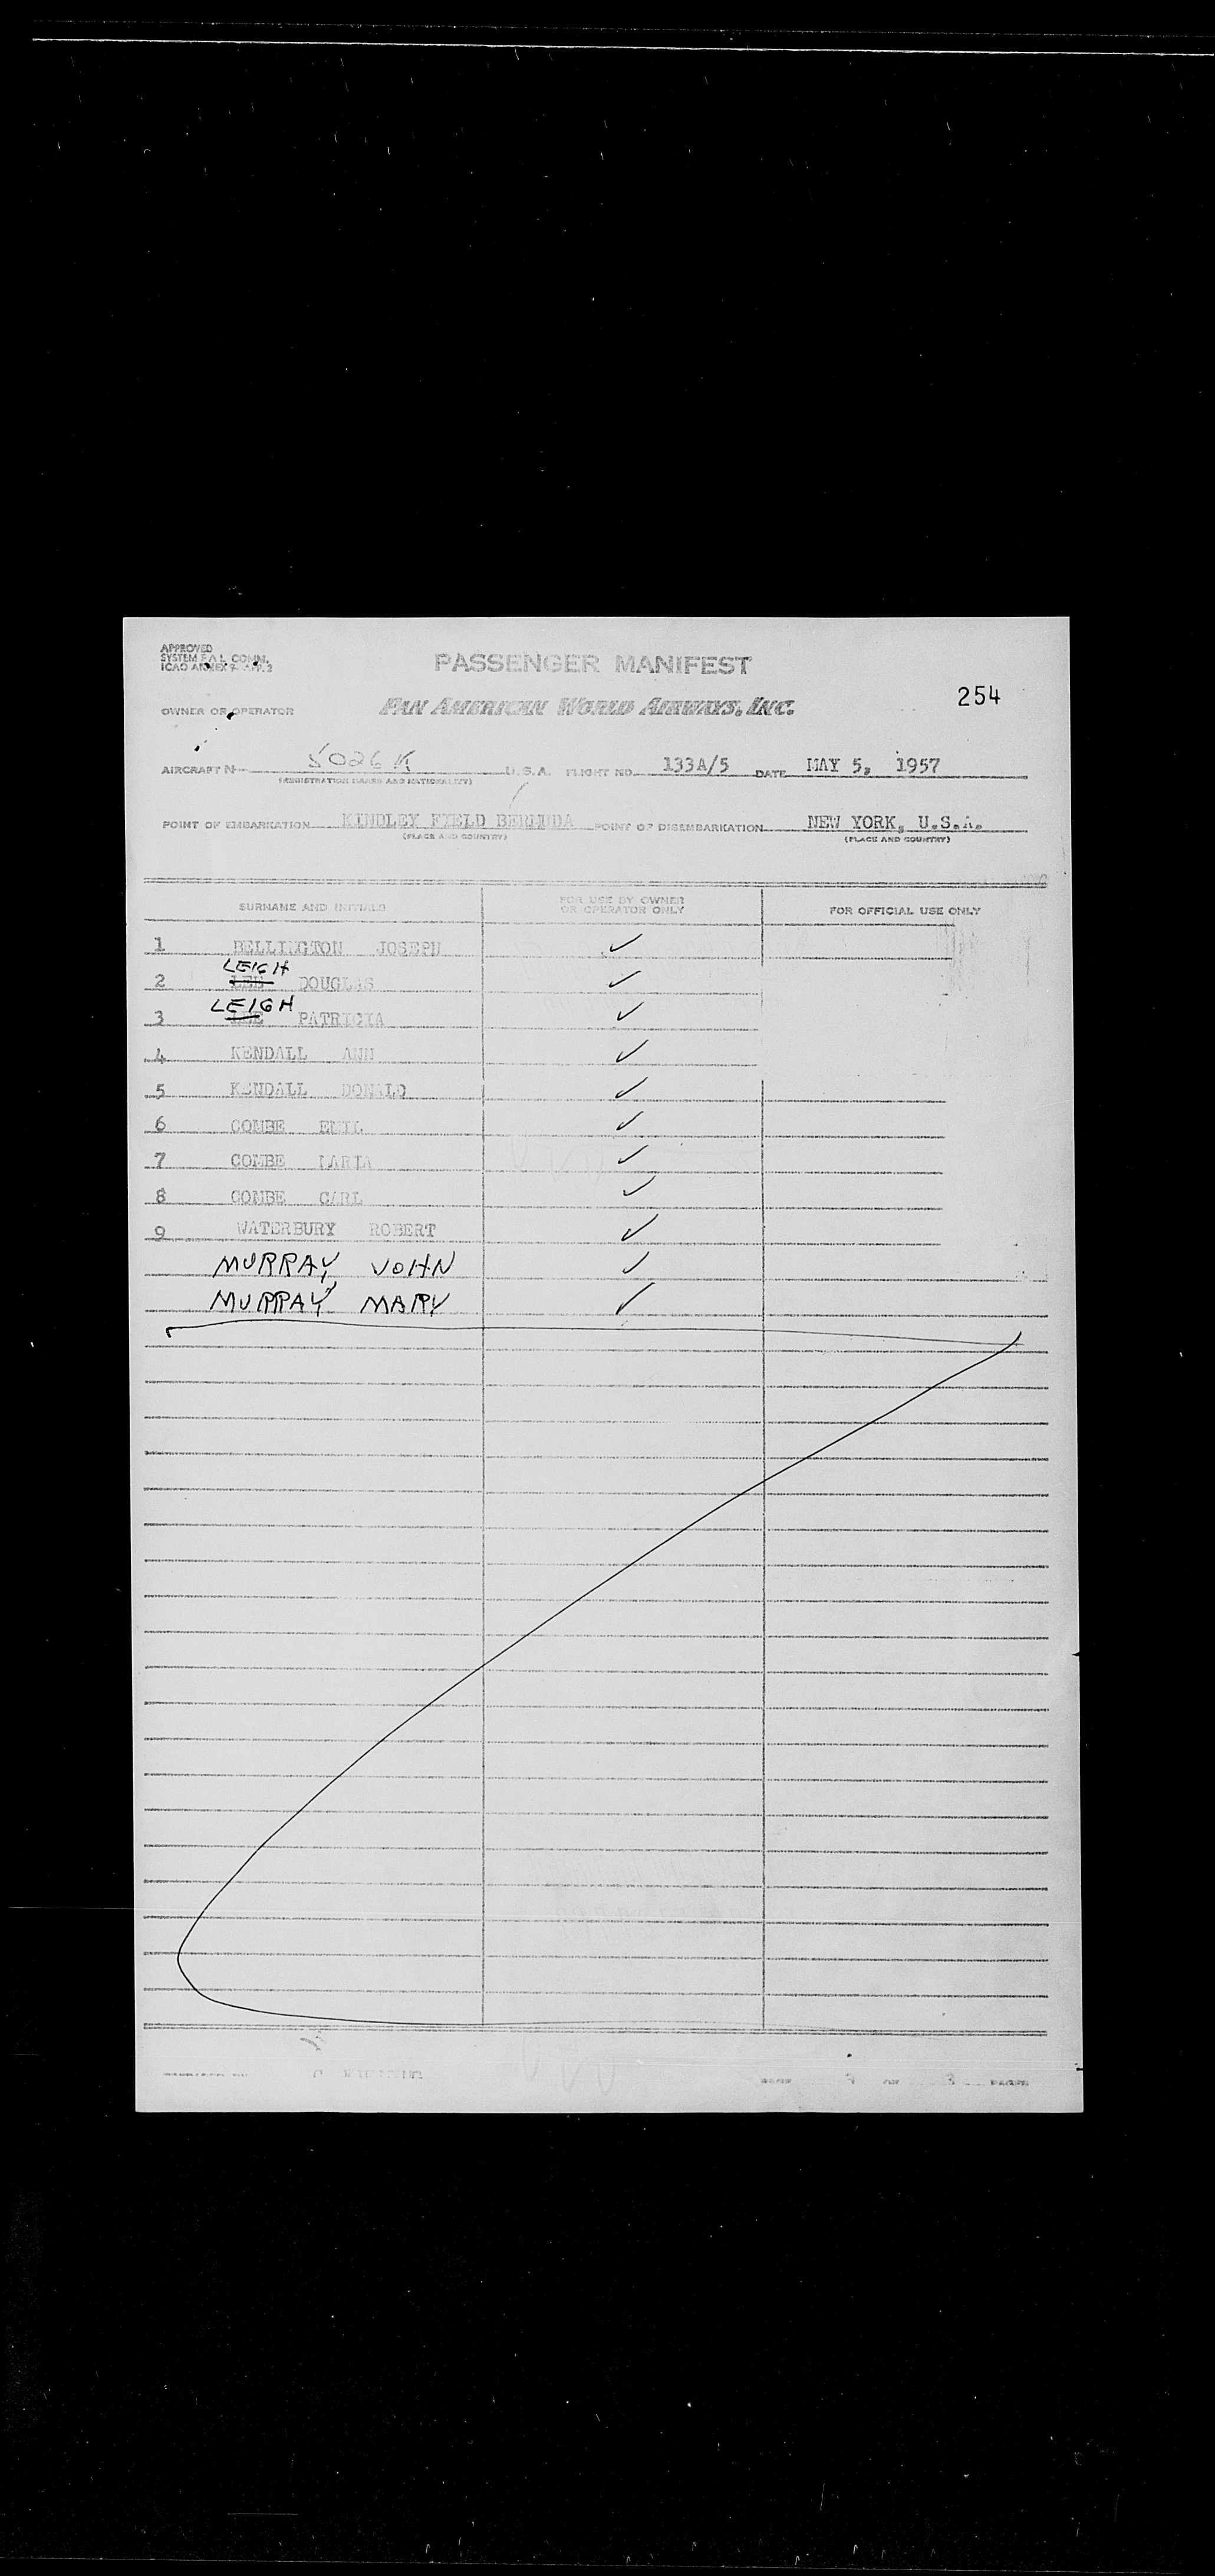 APPROVED
SYSTEM F.A.L. COMM.
ICAO ANNEX 9 APP. 2
PASSENGER MANIFEST
254
OWNER OR OPERATOR PAN AMERICAN WORLD AIRWAYS, INC.
AIRCRAFT N 5026 K U.S.A. FLIGHT NO. 133A/5 DATE MAY 5, 1957
(REGISTRATION MARKS AND NATIONALITY)
POINT OF EMBARKATION KINDLEY FIELD BERMUDA POINT OF DISEMBARKATION NEW YORK, U.S.A.
(PLACE AND COUNTRY) (PLACE AND COUNTRY)
SURNAME AND INITIALS FOR USE BY OWNER OR OPERATOR ONLY FOR OFFICIAL USE ONLY
1 BELLINGTON JOSEPH ✓
LEIGH
2 LEE DOUGLAS ✓
LEIGH
3 LEE PATRICIA ✓
4 KENDALL ANN ✓
5 KENDALL DONALD ✓
6 COMBE EMIL ✓
7 COMBE MARIA ✓
8 COMBE CARL ✓
9 WATERBURY ROBERT ✓
MURRAY, JOHN ✓
MURRAY, MARY ✓
PAGE OF 3 PAGES